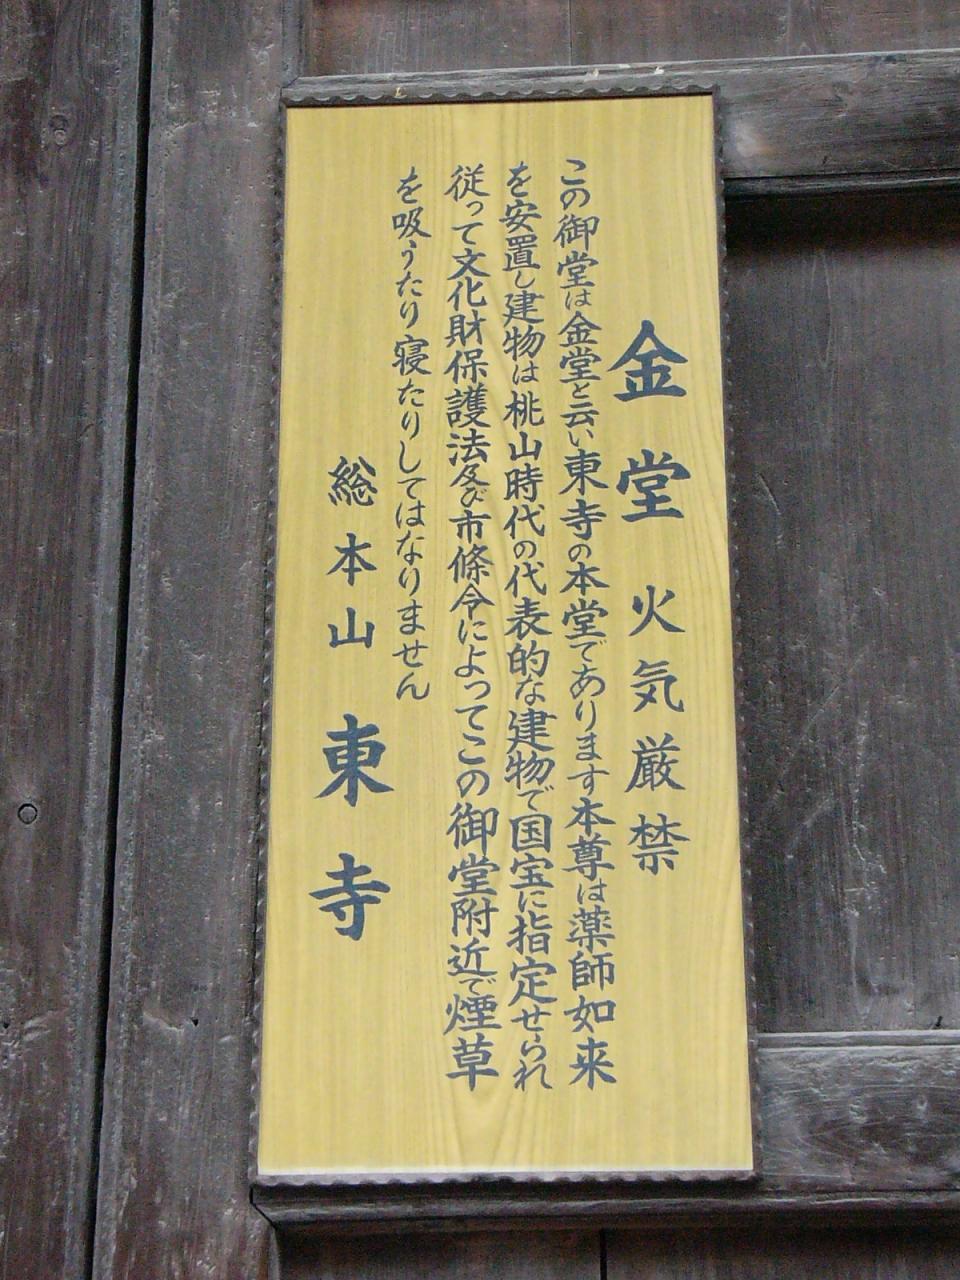 金堂 火気厳禁
この御堂は金堂と云い東寺の本堂であります本尊は薬師如来
を安置し建物は桃山時代の代表的な建物で国宝に指定せられ
従って文化財保護法及び市條令によってこの御堂附近で煙草
を吸うたり寝たりしてはなりません
総本山 東寺